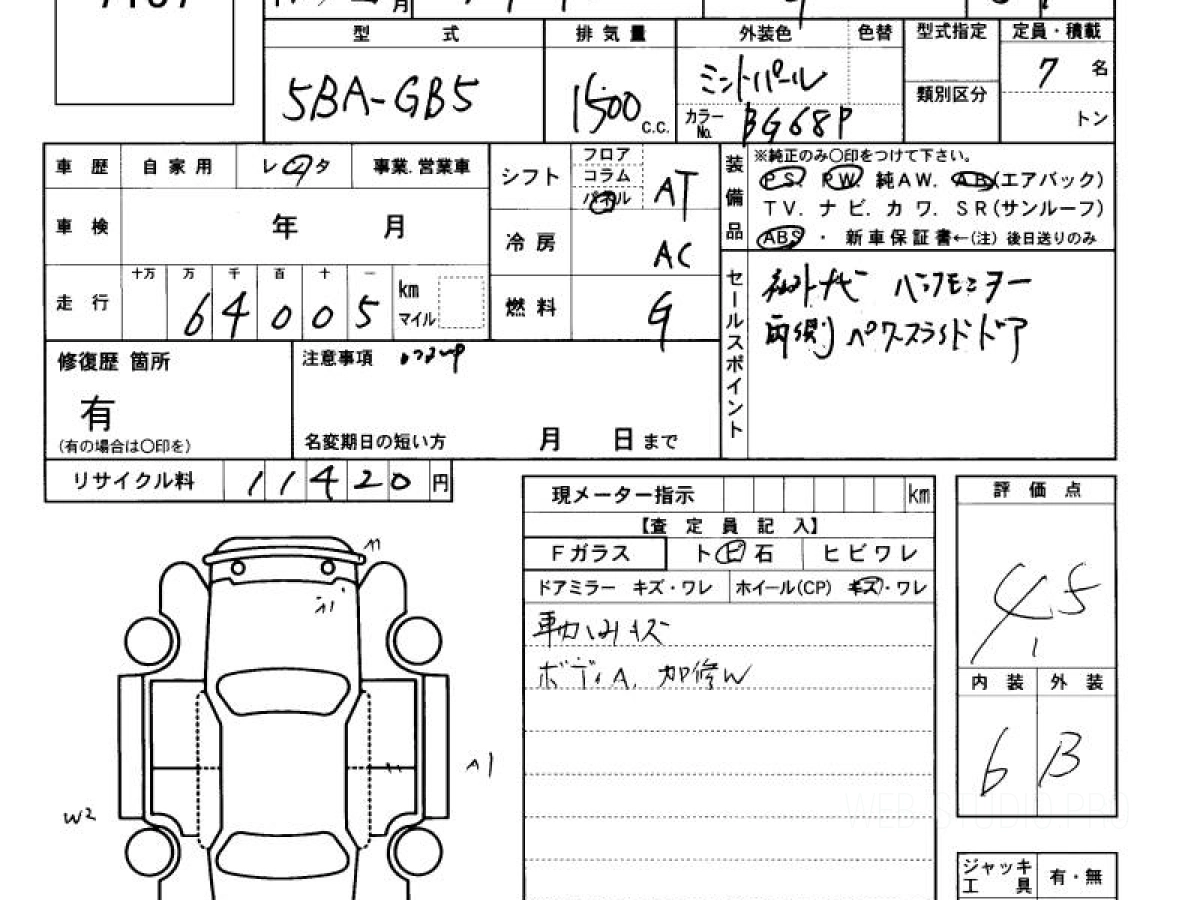 型 式 排 気 量 外装色 色替 型式指定 定員・積載
5BA-GB5 1500 c.c. ミントパール 7 名
カラーNo. BG68P 類別区分 トン
車 歴 自 家 用 レ ン タ 事業.営業車
車 検 年 月
走 行 十万 万 千 百 十 一
6 4 0 0 5 km
マイル
シフト フロア コラム パネル AT
冷 房 AC
燃 料 G
装備品 ※純正のみ○印をつけて下さい。
PS. PW. 純AW. AB(エアバック)
TV. ナ ビ. カ ワ. SR(サンルーフ)
ABS ・ 新車保証書←(注) 後日送りのみ
セールスポイント
両側 パワースライドドア
修復歴 箇所
有
(有の場合は○印を)
注意事項
名変期日の短い方 月 日 まで
リサイクル料 1 1 4 2 0 円
現メーター指示 km
【査 定 員 記 入】
Fガラス ト ビ 石 ヒ ビ ワ レ
ドアミラー キズ・ワレ ホイール(CP) キズ・ワレ
ボディA. 加修W
評 価 点
4.5
内 装 外 装
6 B
A1
A1
A1
W2
ジャッキ
工 具
有・無